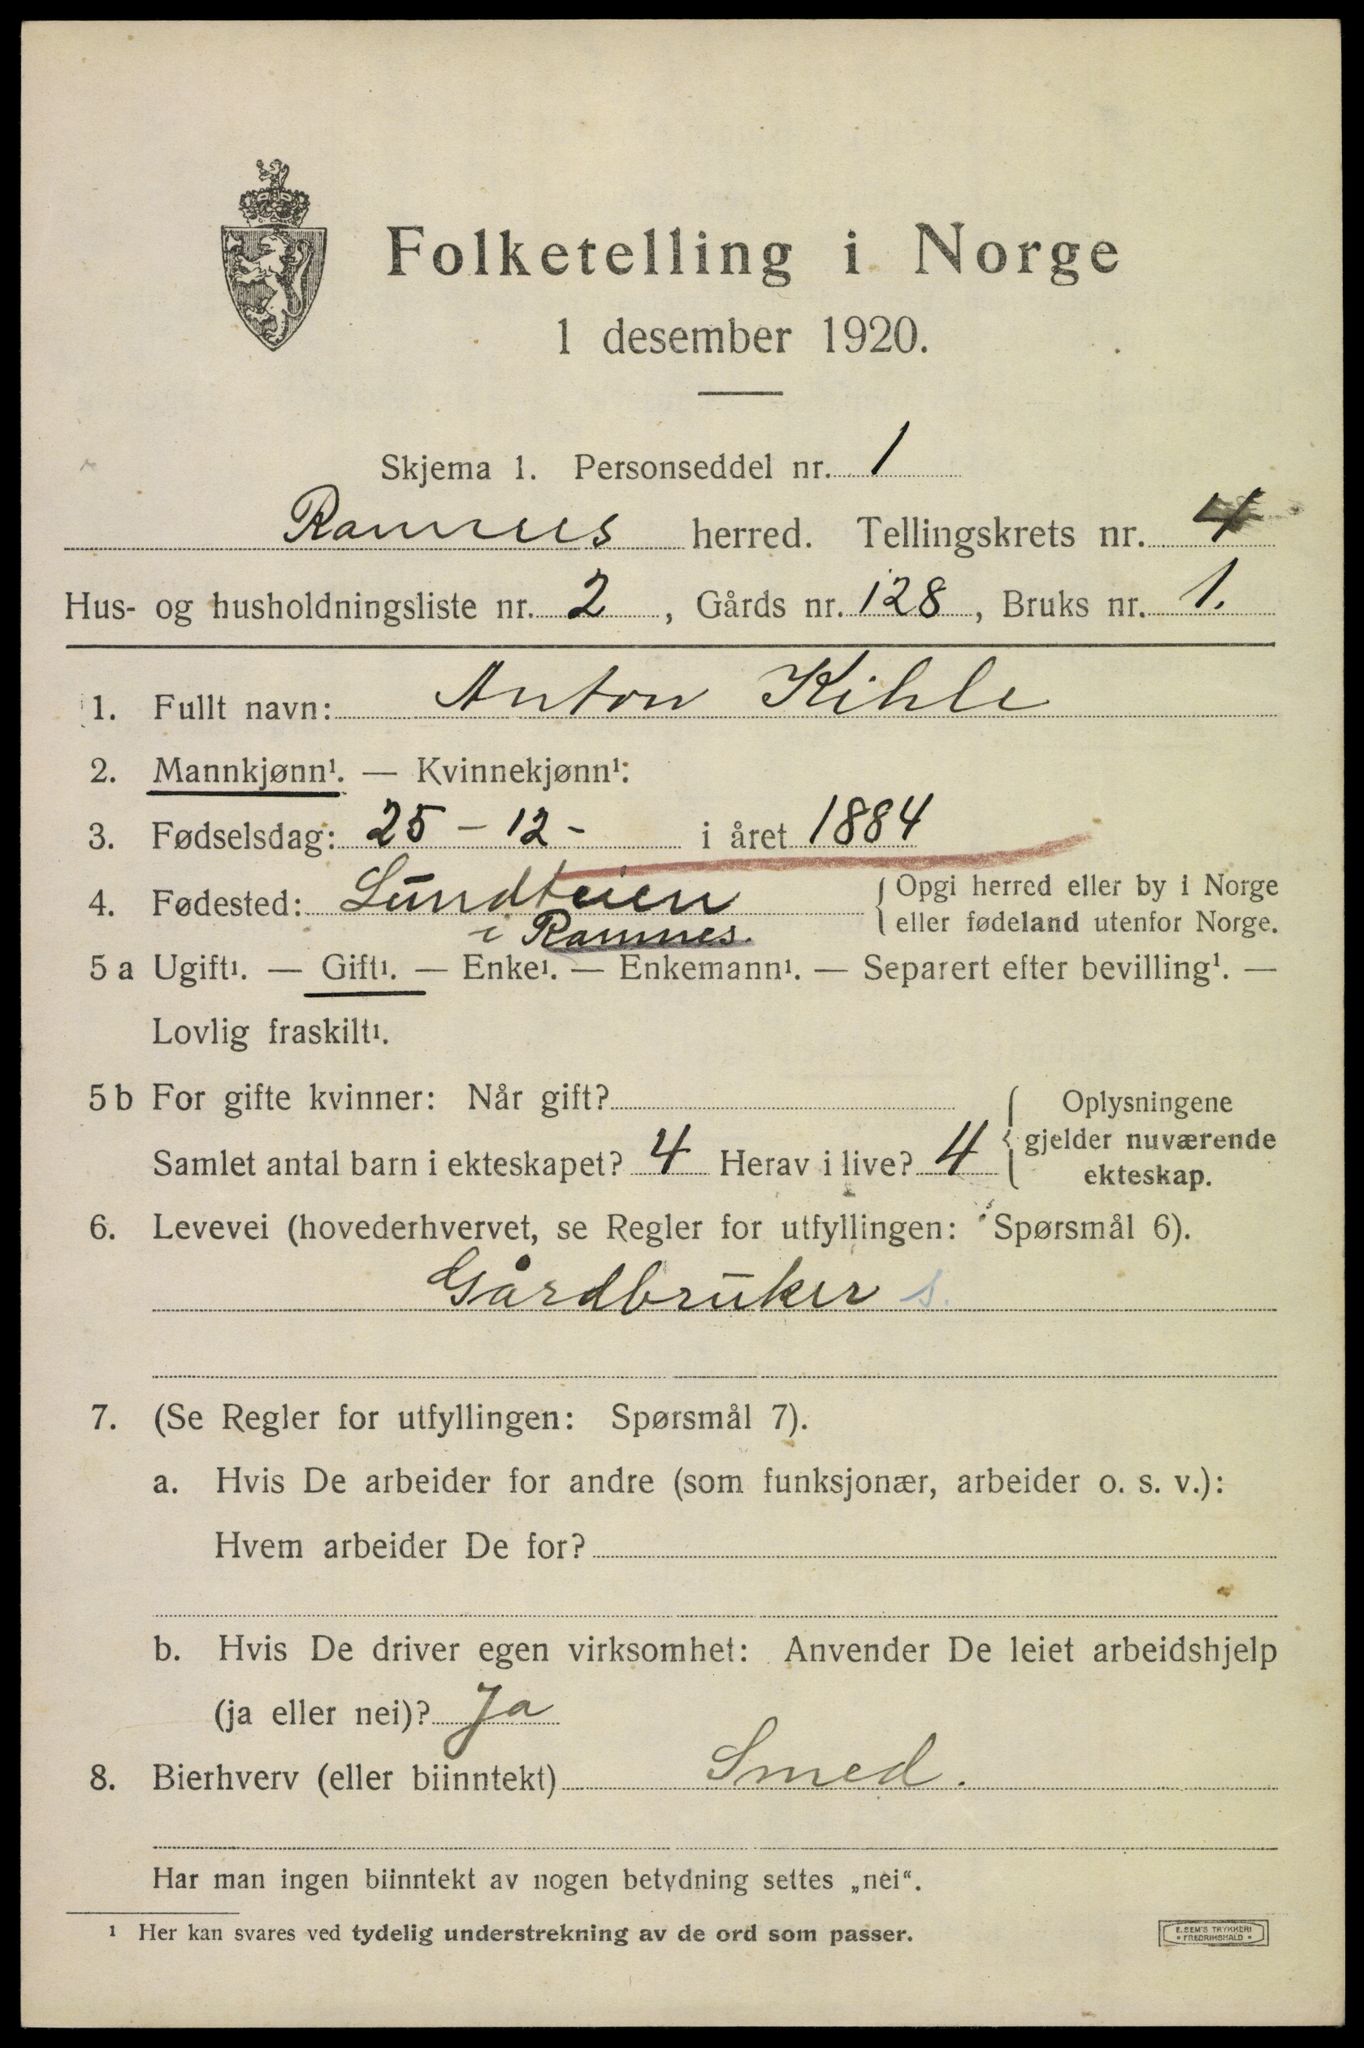 Folketelling i Norge
1 desember 1920.
Skjema 1. Personseddel nr. 1
Ramnes herred. Tellingskrets nr. 4
Hus- og husholdningsliste nr. 2, Gårds nr. 128, Bruks nr. 1.
1. Fullt navn: Anton Kihle
2. Mannkjønn¹. — Kvinnekjønn¹.
3. Fødselsdag: 25 - 12 - i året 1884
4. Fødested: Lundteien { Opgi herred eller by i Norge
i Ramnes. eller fødeland utenfor Norge.
5 a Ugift¹. — Gift¹. — Enke¹. — Enkemann¹. — Separert efter bevilling¹. —
Lovlig fraskilt¹.
5 b For gifte kvinner: Når gift? { Oplysningene
Samlet antal barn i ekteskapet? 4 Herav i live? 4 gjelder nuværende
ekteskap.
6. Levevei (hovederhvervet, se Regler for utfyllingen: Spørsmål 6).
Gårdbruker s.
7. (Se Regler for utfyllingen: Spørsmål 7).
a. Hvis De arbeider for andre (som funksjonær, arbeider o. s. v.):
Hvem arbeider De for?
b. Hvis De driver egen virksomhet: Anvender De leiet arbeidshjelp
(ja eller nei)? Ja
8. Bierhverv (eller biinntekt) Smed.
Har man ingen biinntekt av nogen betydning settes „nei“.
¹ Her kan svares ved tydelig understrekning av de ord som passer.
E. SEM'S TRYKKERI
• FREDRIKSHALD •